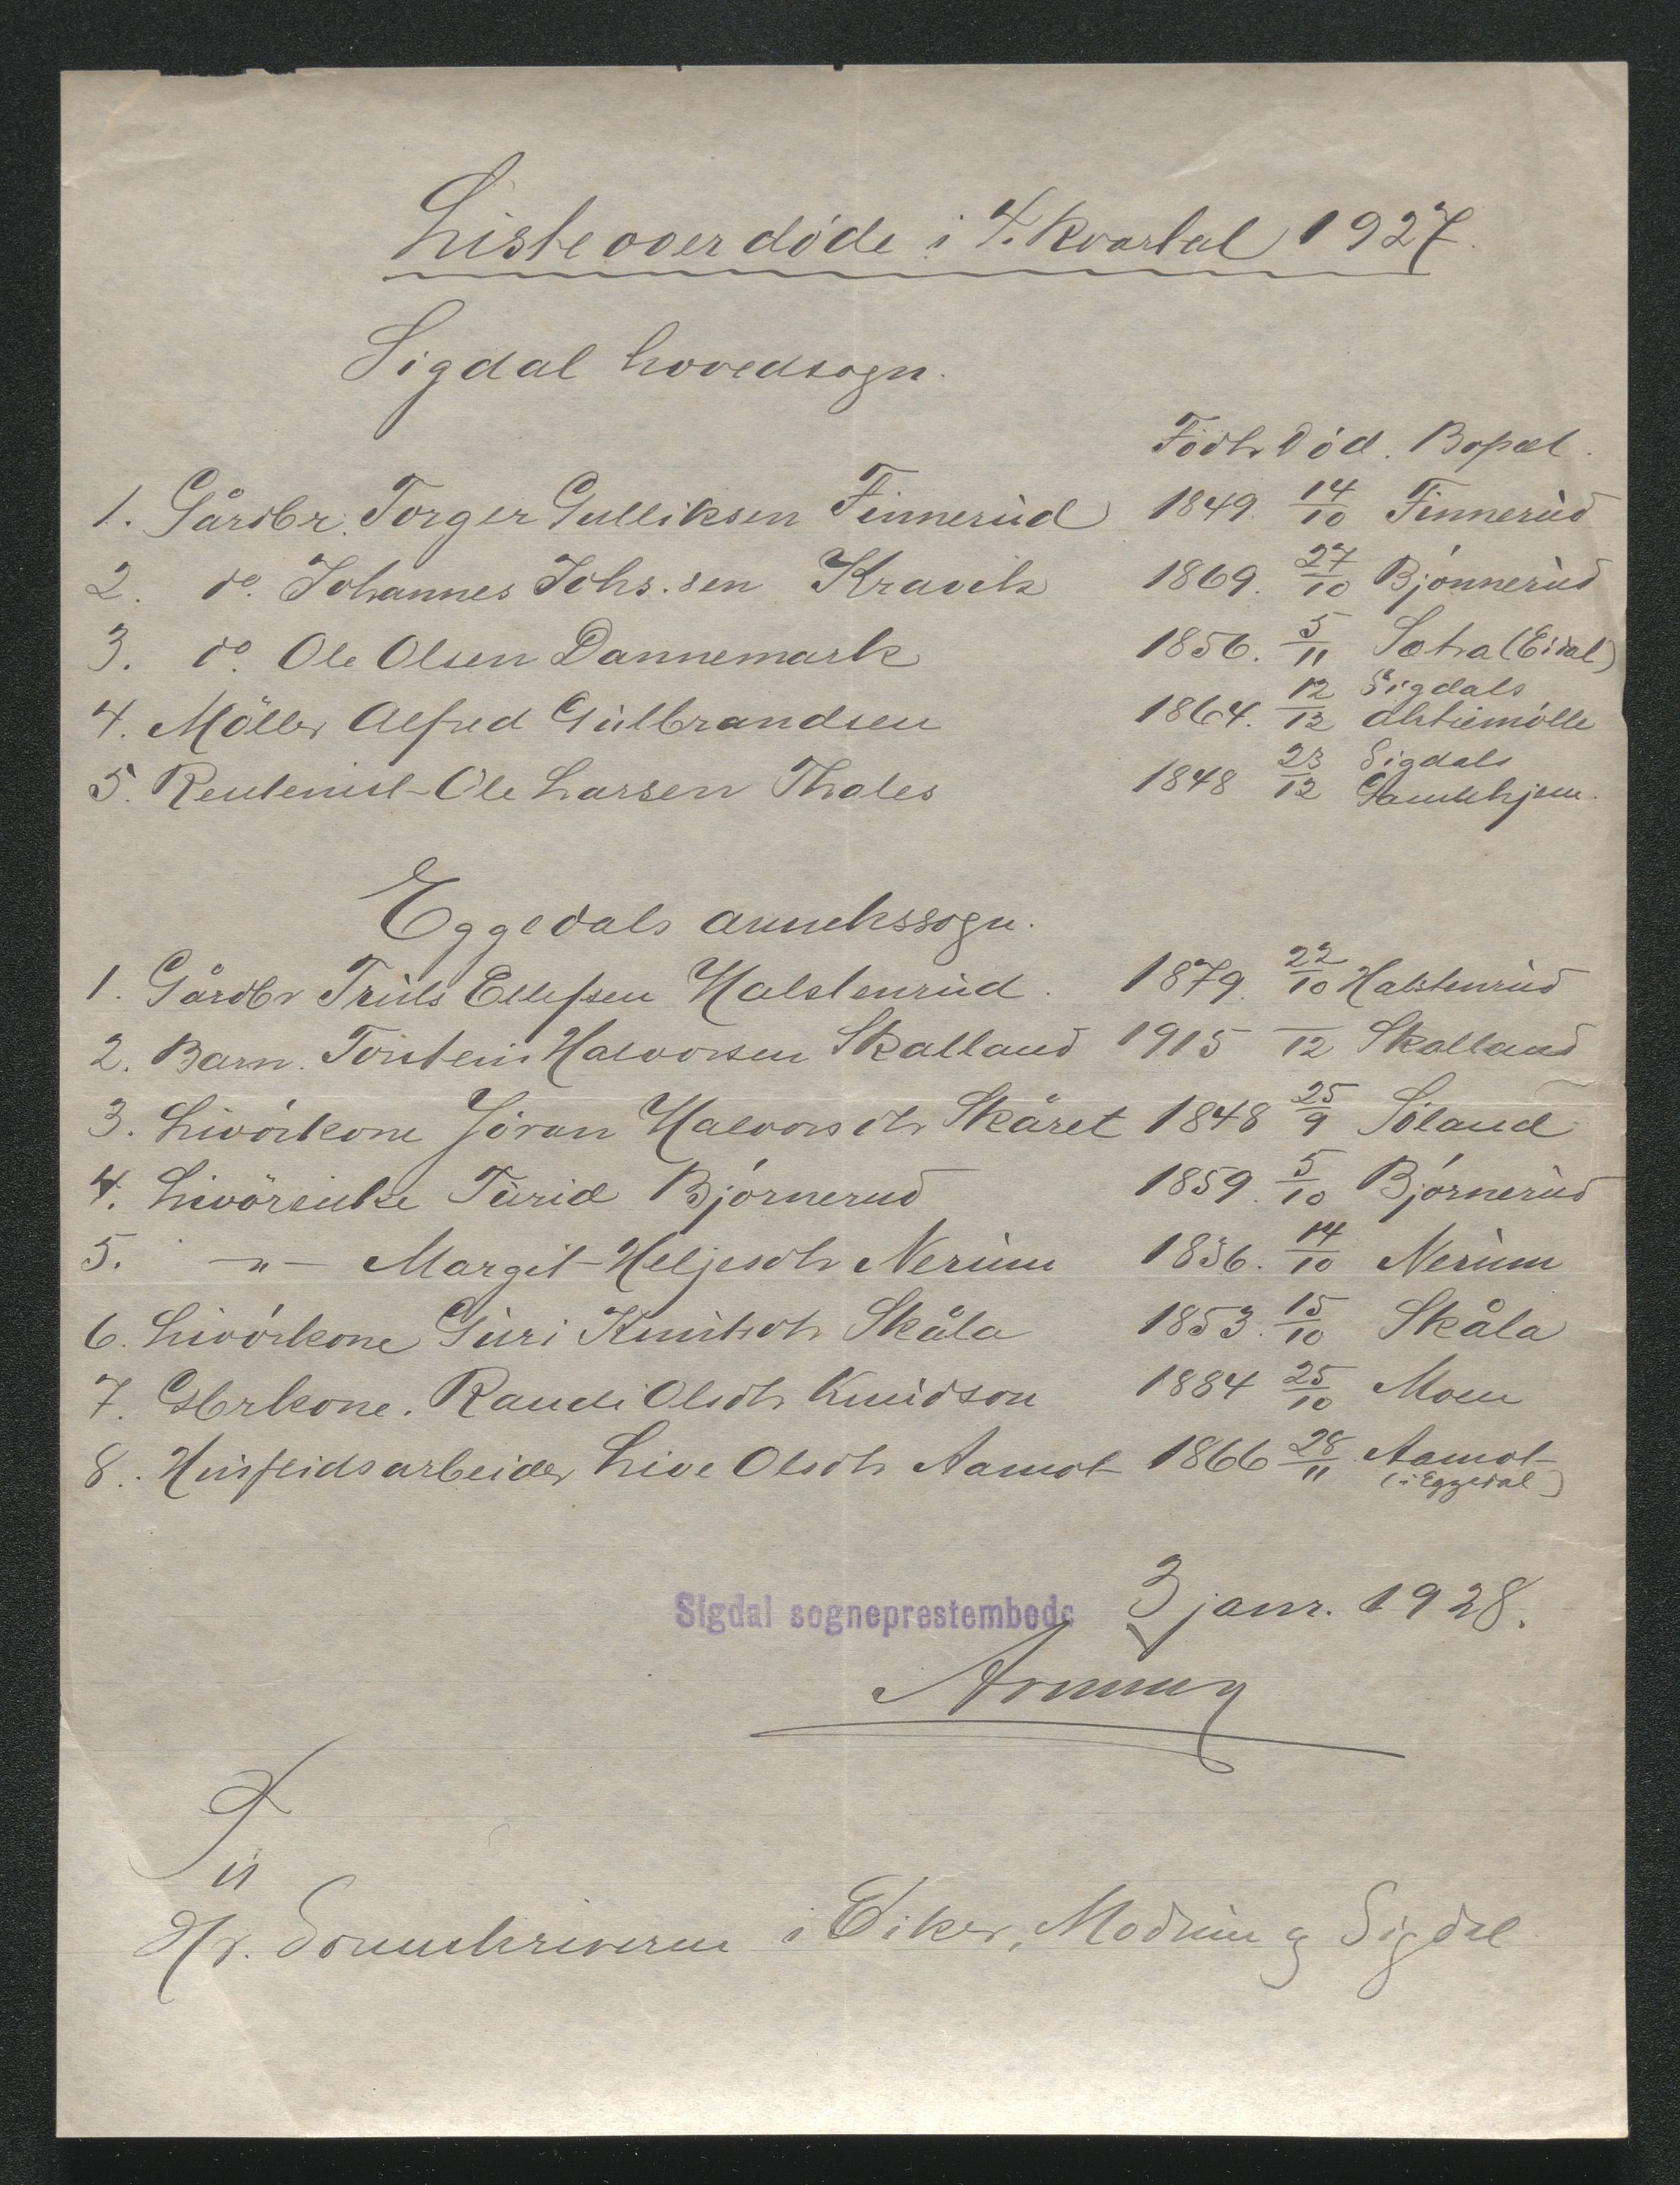 Liste over døde i 4. kvartal 1927.
Sigdal hovedsogn.
Født Død. Bopæl.
1. Gårdbr. Torger Gulliksen Finnerud 1849. 14/10 Finnerud
2. do. Johannes Johs.sen Kravik 1869. 27/10 Bjønnerud
3. do. Ole Olsen Dannemark 1856. 5/11 Sotra (Eidal)
4. Möller Alfred Gulbrandsen 1864. 12/12 Sigdals aktiemølle
5. Rentenist Ole Larsen Thales 1848 23/12 Sigdals Gamlehjem.
Eggedals annekssogn.
1. Gårdbr Truls Ellefsen Halstenrud. 1879. 22/10 Halstenrud
2. Barn. Torstein Halvorsen Skalland 1915 —/12 Skalland
3. Livörkone Jöran Halvorsdtr Skåret 1848 25/9 Søland
4. Livörenke Turid Bjørnerud 1859. 5/10 Bjørnerud
5. —"— Margit Heljesdtr Nerum 1836. 14/10 Nerum
6. Livörkone Guri Knutsdtr Skåla 1853. 15/10 Skåla
7. Gbrkone. Randi Olsdtr Knudson 1884 25/10 Moen
8. Husflidsarbeider Live Olsdtr Aamot 1866 28/11 Aamot (i Eggedal)
Sigdal sogneprestembede 3 janr. 1928.
Til
Hr. Sorenskriveren i Eiker, Modum og Sigdal